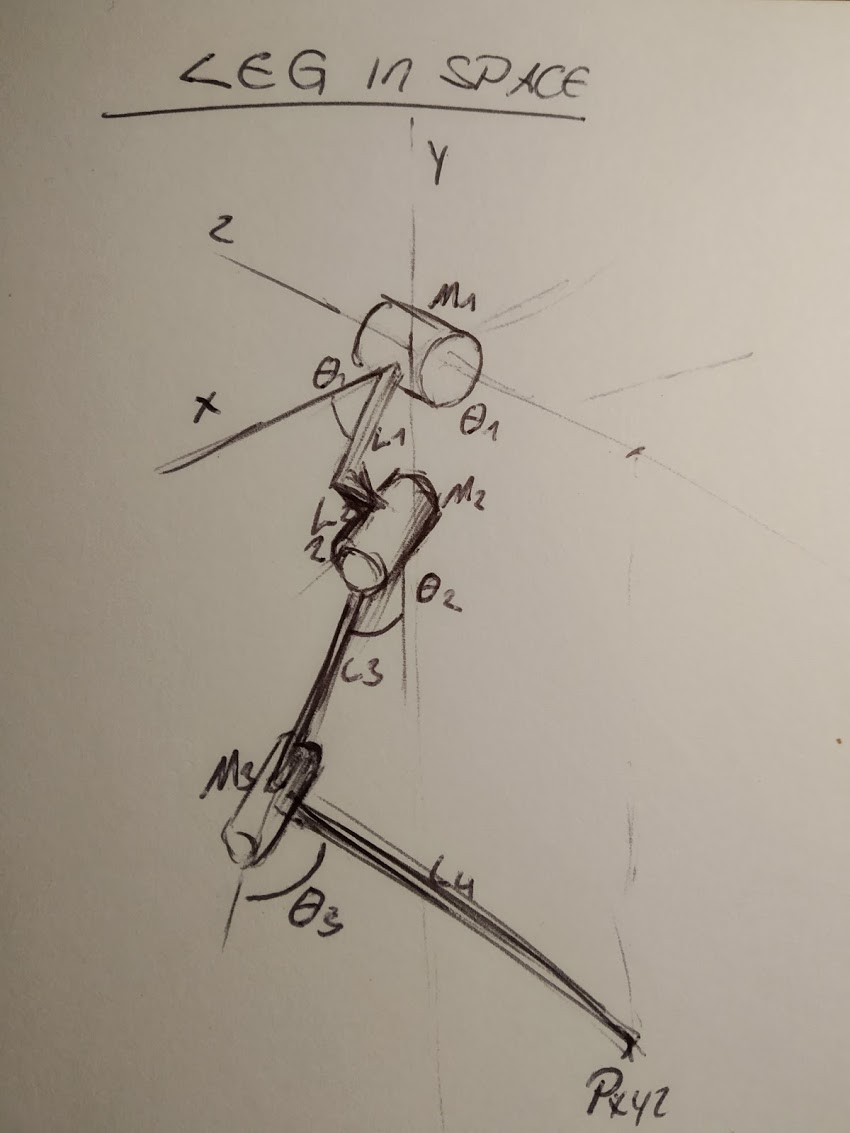 LEG IN SPACE
Y
Z
M1
θ1
X
θ1
L1
L2
M2
θ2
L3
M3
L4
θ3
Pxyz